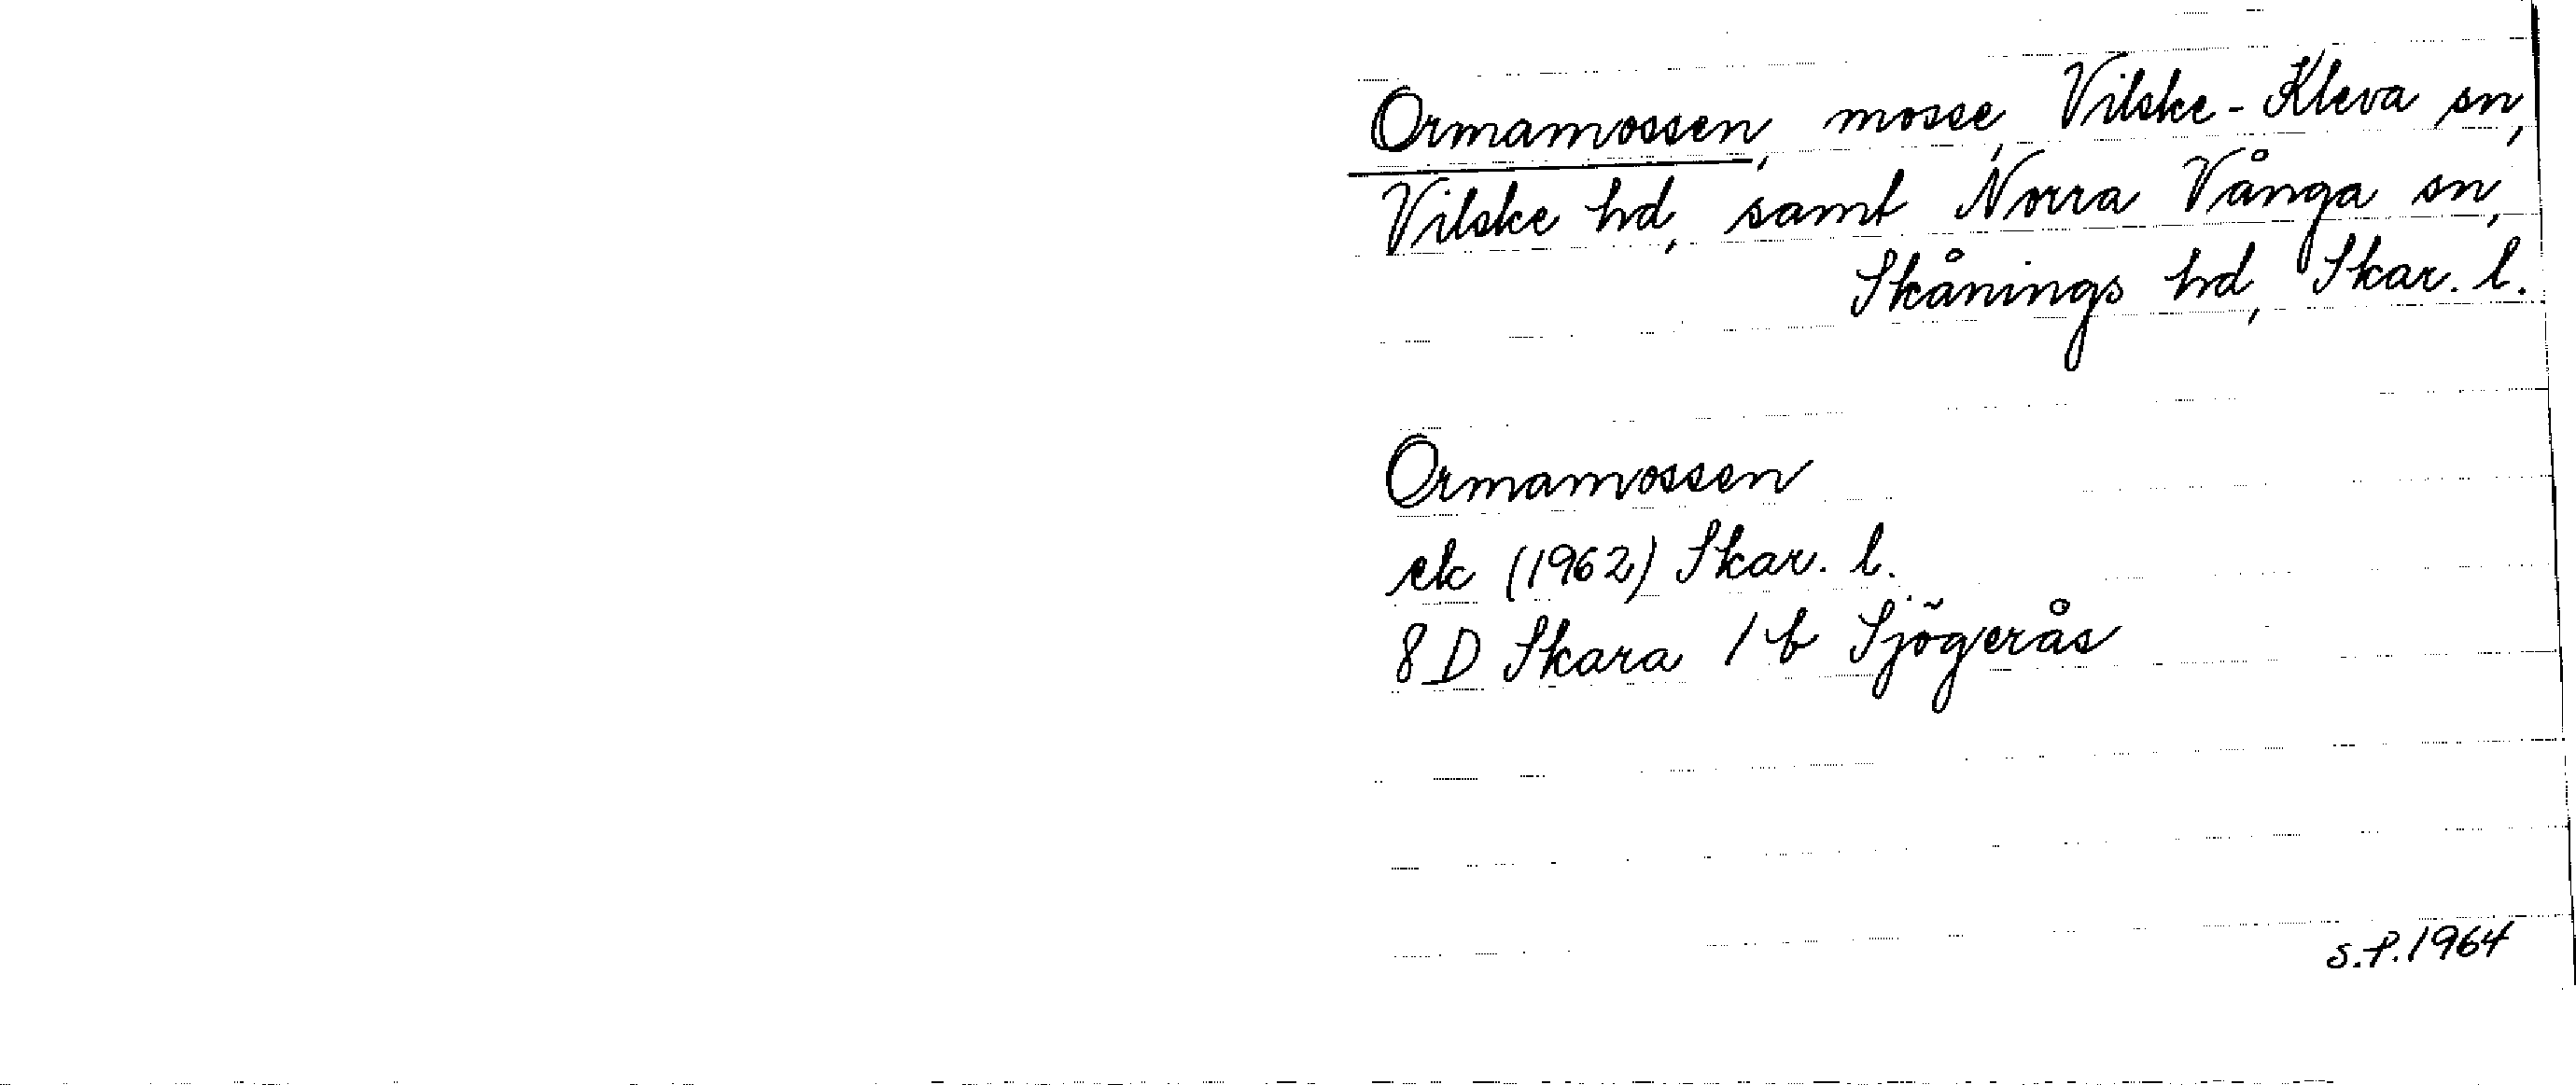 Ormamossen, mosse, Vilske-Kleva sn,
Vilske hd, samt Norra Vånga sn,
Skånings hd, Skar. l.
Ormamossen
ek (1962) Skar. l.
8 D Skara 1 b Sjögerås
S.P. 1964